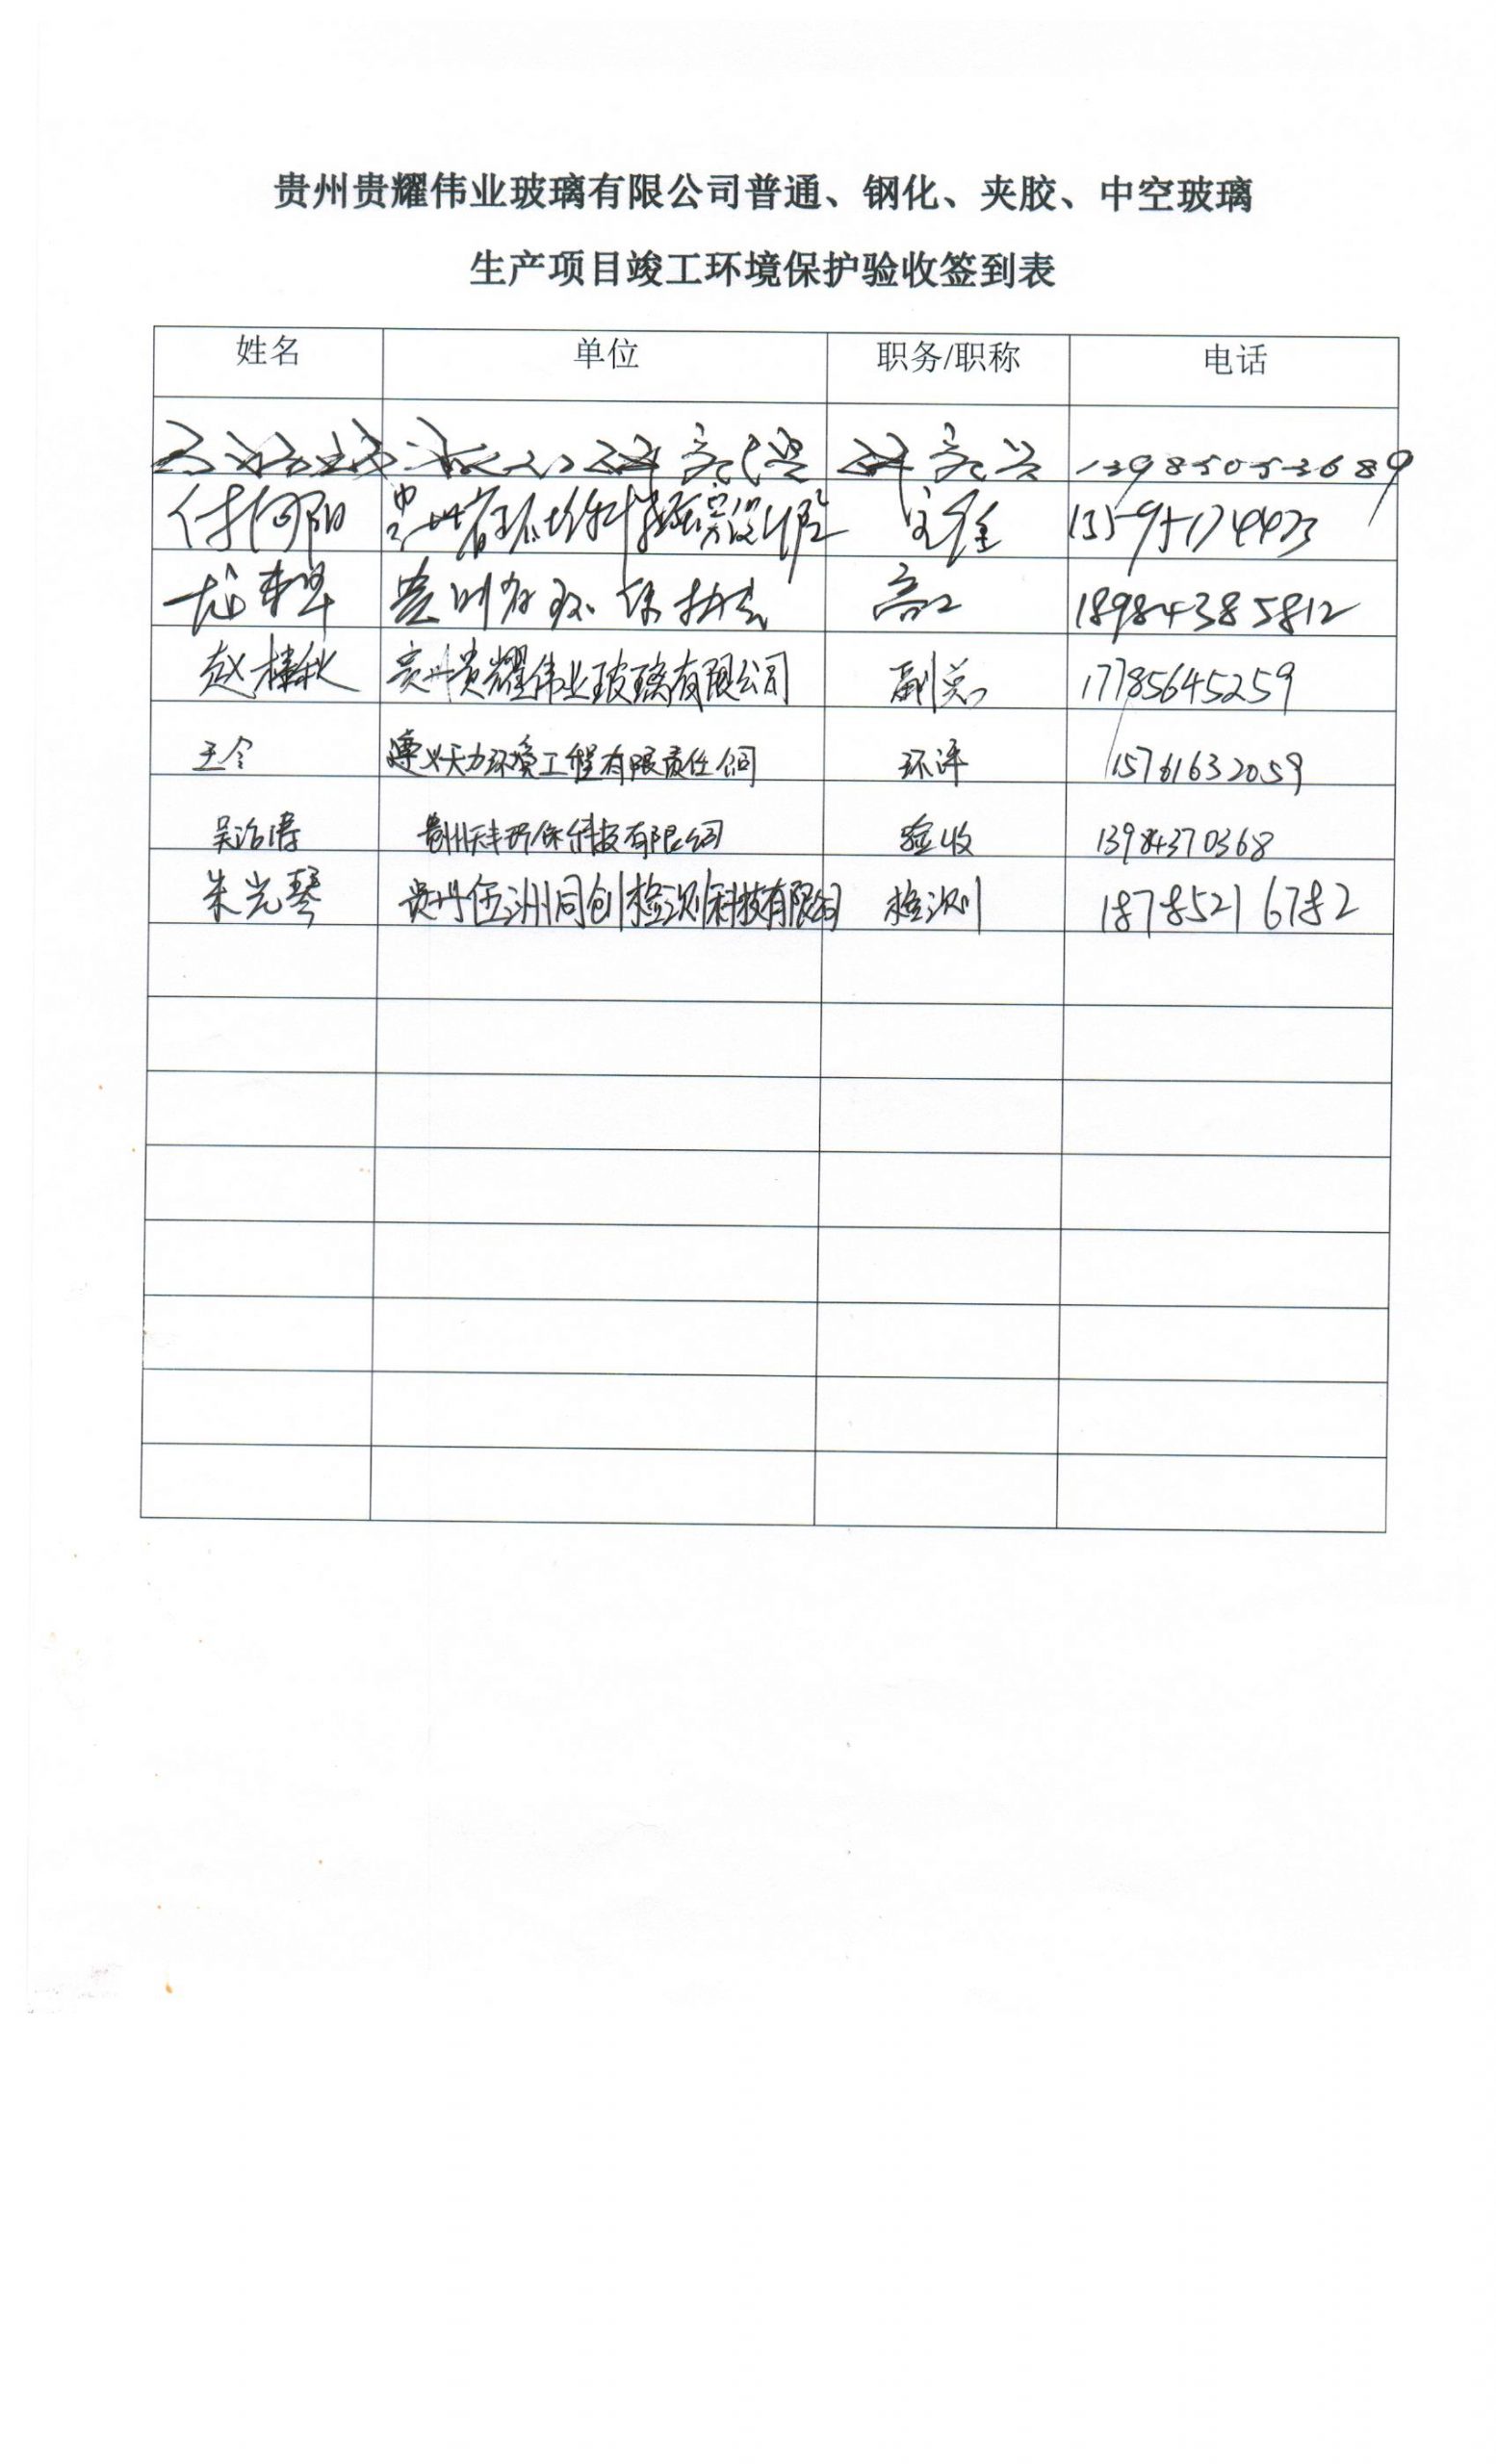 贵州贵耀伟业玻璃有限公司普通、钢化、夹胶、中空玻璃
生产项目竣工环境保护验收签到表
姓名 单位 职务/职称 电话
13985053689
付向阳 贵州省环境科学研究设计院 主任 13595174423
贵州省环保协会 高工 18984385812
赵棒秋 贵州贵耀伟业玻璃有限公司 副总 17785645259
王令 遵义天力环境工程有限责任公司 环评 15761632059
吴治涛 贵州天丰环保科技有限公司 验收 13984370368
朱光琴 贵州伍洲同创检测科技有限公司 检测 18785216782